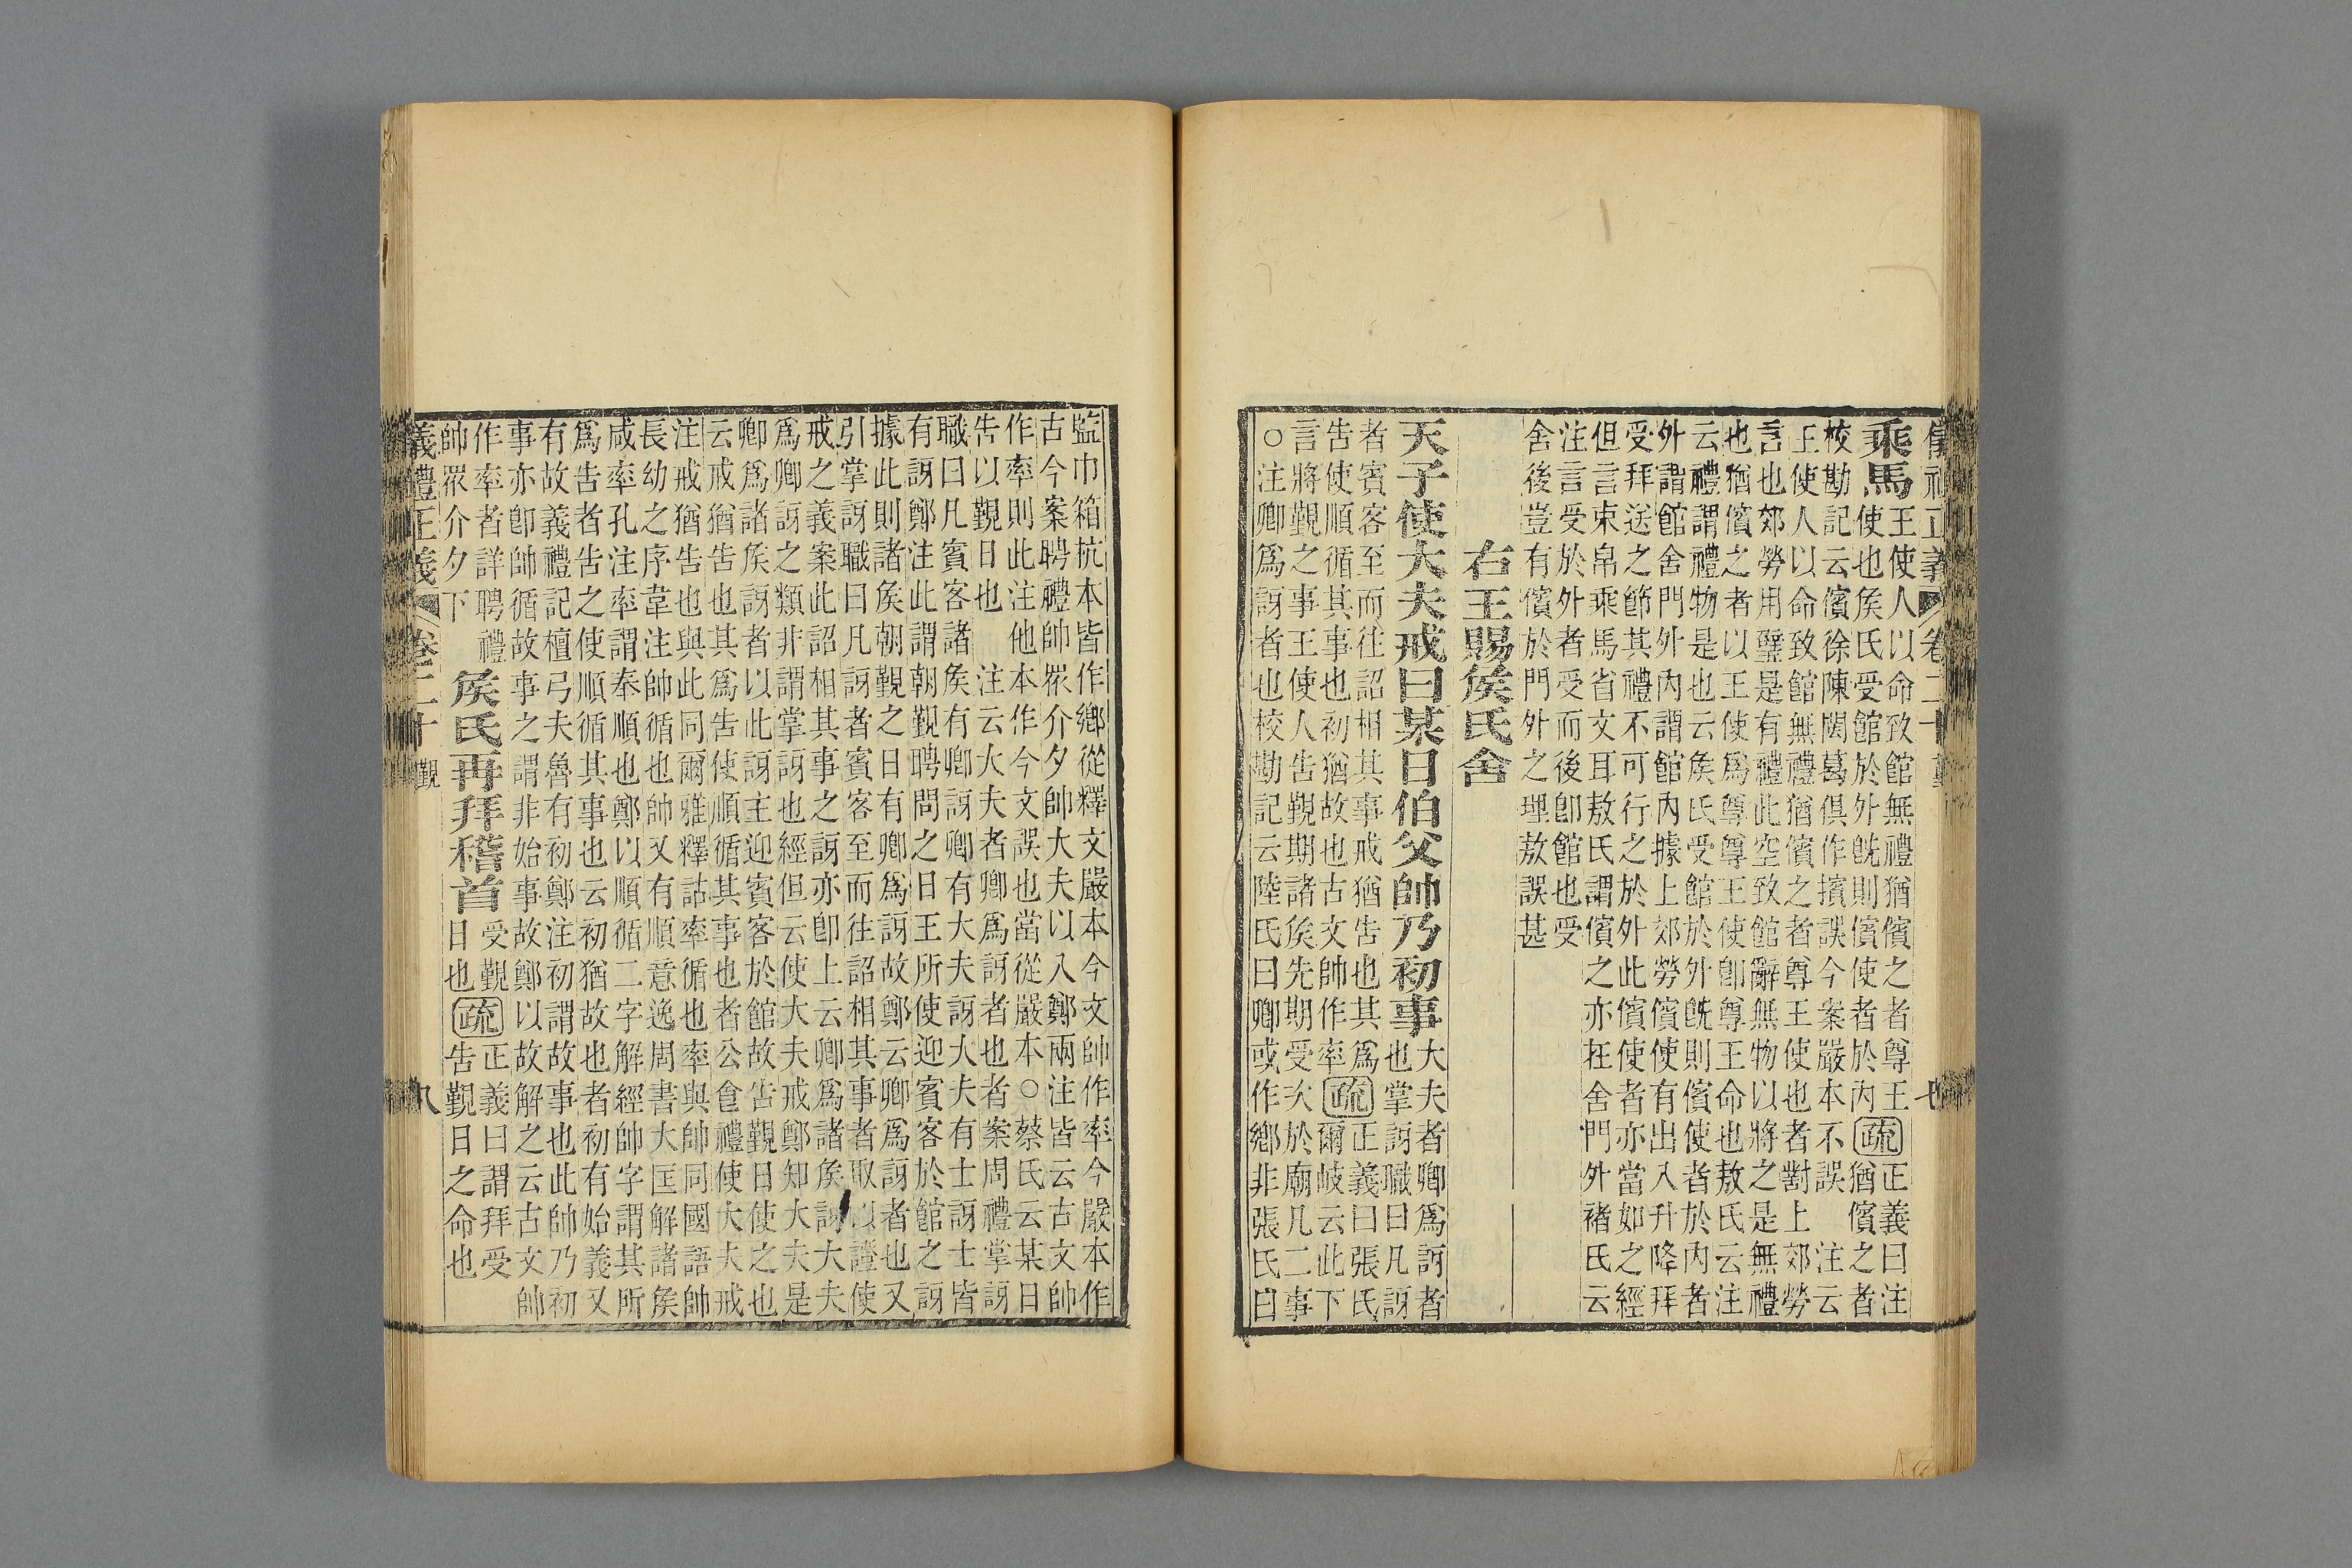 儀禮正義 卷二十 覲 七
乘馬
王使人以命致館無禮猶儐之者尊王
使也矦氏受館於外旣則儐使者於內
疏
正義曰注
猶儐之者
校勘記云儐徐陳閎葛俱作擯誤今案嚴本不誤 注云
王使人以命致館無禮猶儐之者尊王使也者對上郊勞
言也郊勞用璧是有禮此空致館辭無物以將之是無禮
也猶儐之者以王使爲尊尊王使卽尊王命也敖氏云注
云禮謂禮物是也云矦氏受館於外旣則儐使者於內者
外謂館舍門外內謂館內據上郊勞儐使有出入升降拜
受拜送之節其禮不可行之於外此儐使者亦當如之經
但言束帛乘馬省文耳敖氏謂儐之亦在舍門外褚氏云
注言受於外者受而後卽館也受
舍後豈有儐於門外之理敖誤甚
右王賜矦氏舍
天子使大夫戒曰某日伯父帥乃初事
大夫者卿爲訝者
也掌訝職曰凡訝
者賓客至而往詔相其事戒猶告也其爲
告使順循其事也初猶故也古文帥作率
疏
正義曰張氏
爾岐云此下
言將覲之事王使人告覲期諸矦先期受次於廟凡二事
○注卿爲訝者也校勘記云陸氏曰卿或作鄉非張氏曰
監巾箱杭本皆作鄉從釋文嚴本今文帥作率今嚴本作
古今案聘禮帥眾介夕帥大夫以入鄭兩注皆云古文帥
作率則此注他本作今文誤也當從嚴本○蔡氏云某日
告以覲日也 注云大夫者卿爲訝者也者案周禮掌訝
職曰凡賓客諸矦有卿訝卿有大夫訝大夫有士訝士皆
有訝鄭注此謂朝覲聘問之日王所使迎賓客於館之訝
據此則諸矦朝覲之日有卿爲訝故鄭云卿爲訝者也又
引掌訝職曰凡訝者賓客至而往詔相其事者取以證使
戒之義案此詔相其事之訝亦卽上云卿爲諸矦訝大夫
爲卿訝之類非謂掌訝也經但云使大夫戒鄭知大夫是
卿爲諸矦訝者以此訝主迎賓客於館故告覲日使之也
云戒猶告也其爲告使順循其事也者公食禮使大夫戒
注戒猶告也與此同爾雅釋詁率循也率與帥同國語帥
長幼之序韋注帥循也帥又有順意逸周書大匡解諸矦
咸率孔注率謂奉順也鄭以順循二字解經帥字謂其所
爲告者告之使順循其事也云初猶故也者初有始義又
有故義禮記檀弓夫魯有初鄭注初謂故事也此帥乃初
事亦卽帥循故事之謂非始事故鄭以故解之云古文帥
作率者詳聘禮
帥眾介夕下
矦氏再拜稽首
受覲
日也
疏
正義曰謂拜受
告覲日之命也
義禮正義 卷二十 覲 八